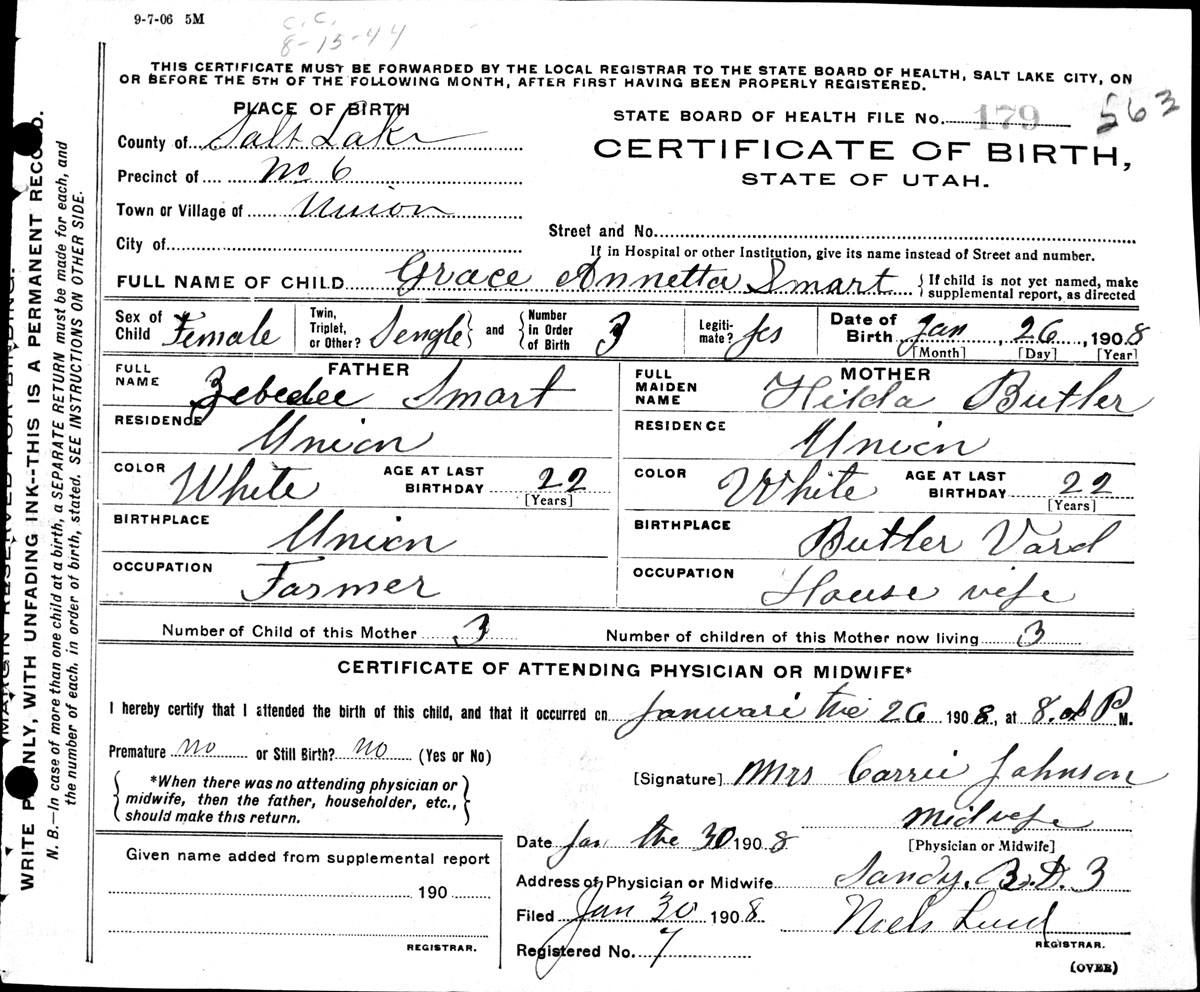 9-7-06 5M
C. C.
8-15-44
THIS CERTIFICATE MUST BE FORWARDED BY THE LOCAL REGISTRAR TO THE STATE BOARD OF HEALTH, SALT LAKE CITY, ON
OR BEFORE THE 5TH OF THE FOLLOWING MONTH, AFTER FIRST HAVING BEEN PROPERLY REGISTERED.
PLACE OF BIRTH
County of Salt Lake
Precinct of No 6
Town or Village of Union
City of
STATE BOARD OF HEALTH FILE No. 179 563
CERTIFICATE OF BIRTH,
STATE OF UTAH.
Street and No.
If in Hospital or other Institution, give its name instead of Street and number.
FULL NAME OF CHILD Grace Annetta Smart {If child is not yet named, make
supplemental report, as directed
Sex of Child Female Twin, Triplet, or Other? Sengle} and {Number in Order of Birth 3 Legiti-mate? Jes Date of Birth Jan 26, 1908
[Month] [Day] [Year]
FATHER
FULL NAME Zebedee Smart
RESIDENCE Union
COLOR White AGE AT LAST BIRTHDAY 22 [Years]
BIRTHPLACE Union
OCCUPATION Farmer
MOTHER
FULL MAIDEN NAME Hilda Butler
RESIDENCE Union
COLOR White AGE AT LAST BIRTHDAY 22 [Years]
BIRTHPLACE Butler Vard
OCCUPATION House vife
Number of Child of this Mother 3 Number of children of this Mother now living 3
CERTIFICATE OF ATTENDING PHYSICIAN OR MIDWIFE*
I hereby certify that I attended the birth of this child, and that it occurred on Januari the 26 1908, at 8. P M.
Premature no or Still Birth? no (Yes or No)
{*When there was no attending physician or
midwife, then the father, householder, etc.,
should make this return.}
[Signature] Mrs Carrie Johnson
Midvife
[Physician or Midwife]
Date Jan the 30 1908
Address of Physician or Midwife Sandy. R.D. 3
Filed Jan 30 1908 Niels Lind
REGISTRAR.
Registered No. 7
(OVER)
Given name added from supplemental report
190
REGISTRAR.
MARGIN RESERVED FOR BINDING.
WRITE PLAINLY, WITH UNFADING INK--THIS IS A PERMANENT RECORD.
N. B.—In case of more than one child at a birth, a SEPARATE RETURN must be made for each, and
the number of each. in order of birth, stated. SEE INSTRUCTIONS ON OTHER SIDE.